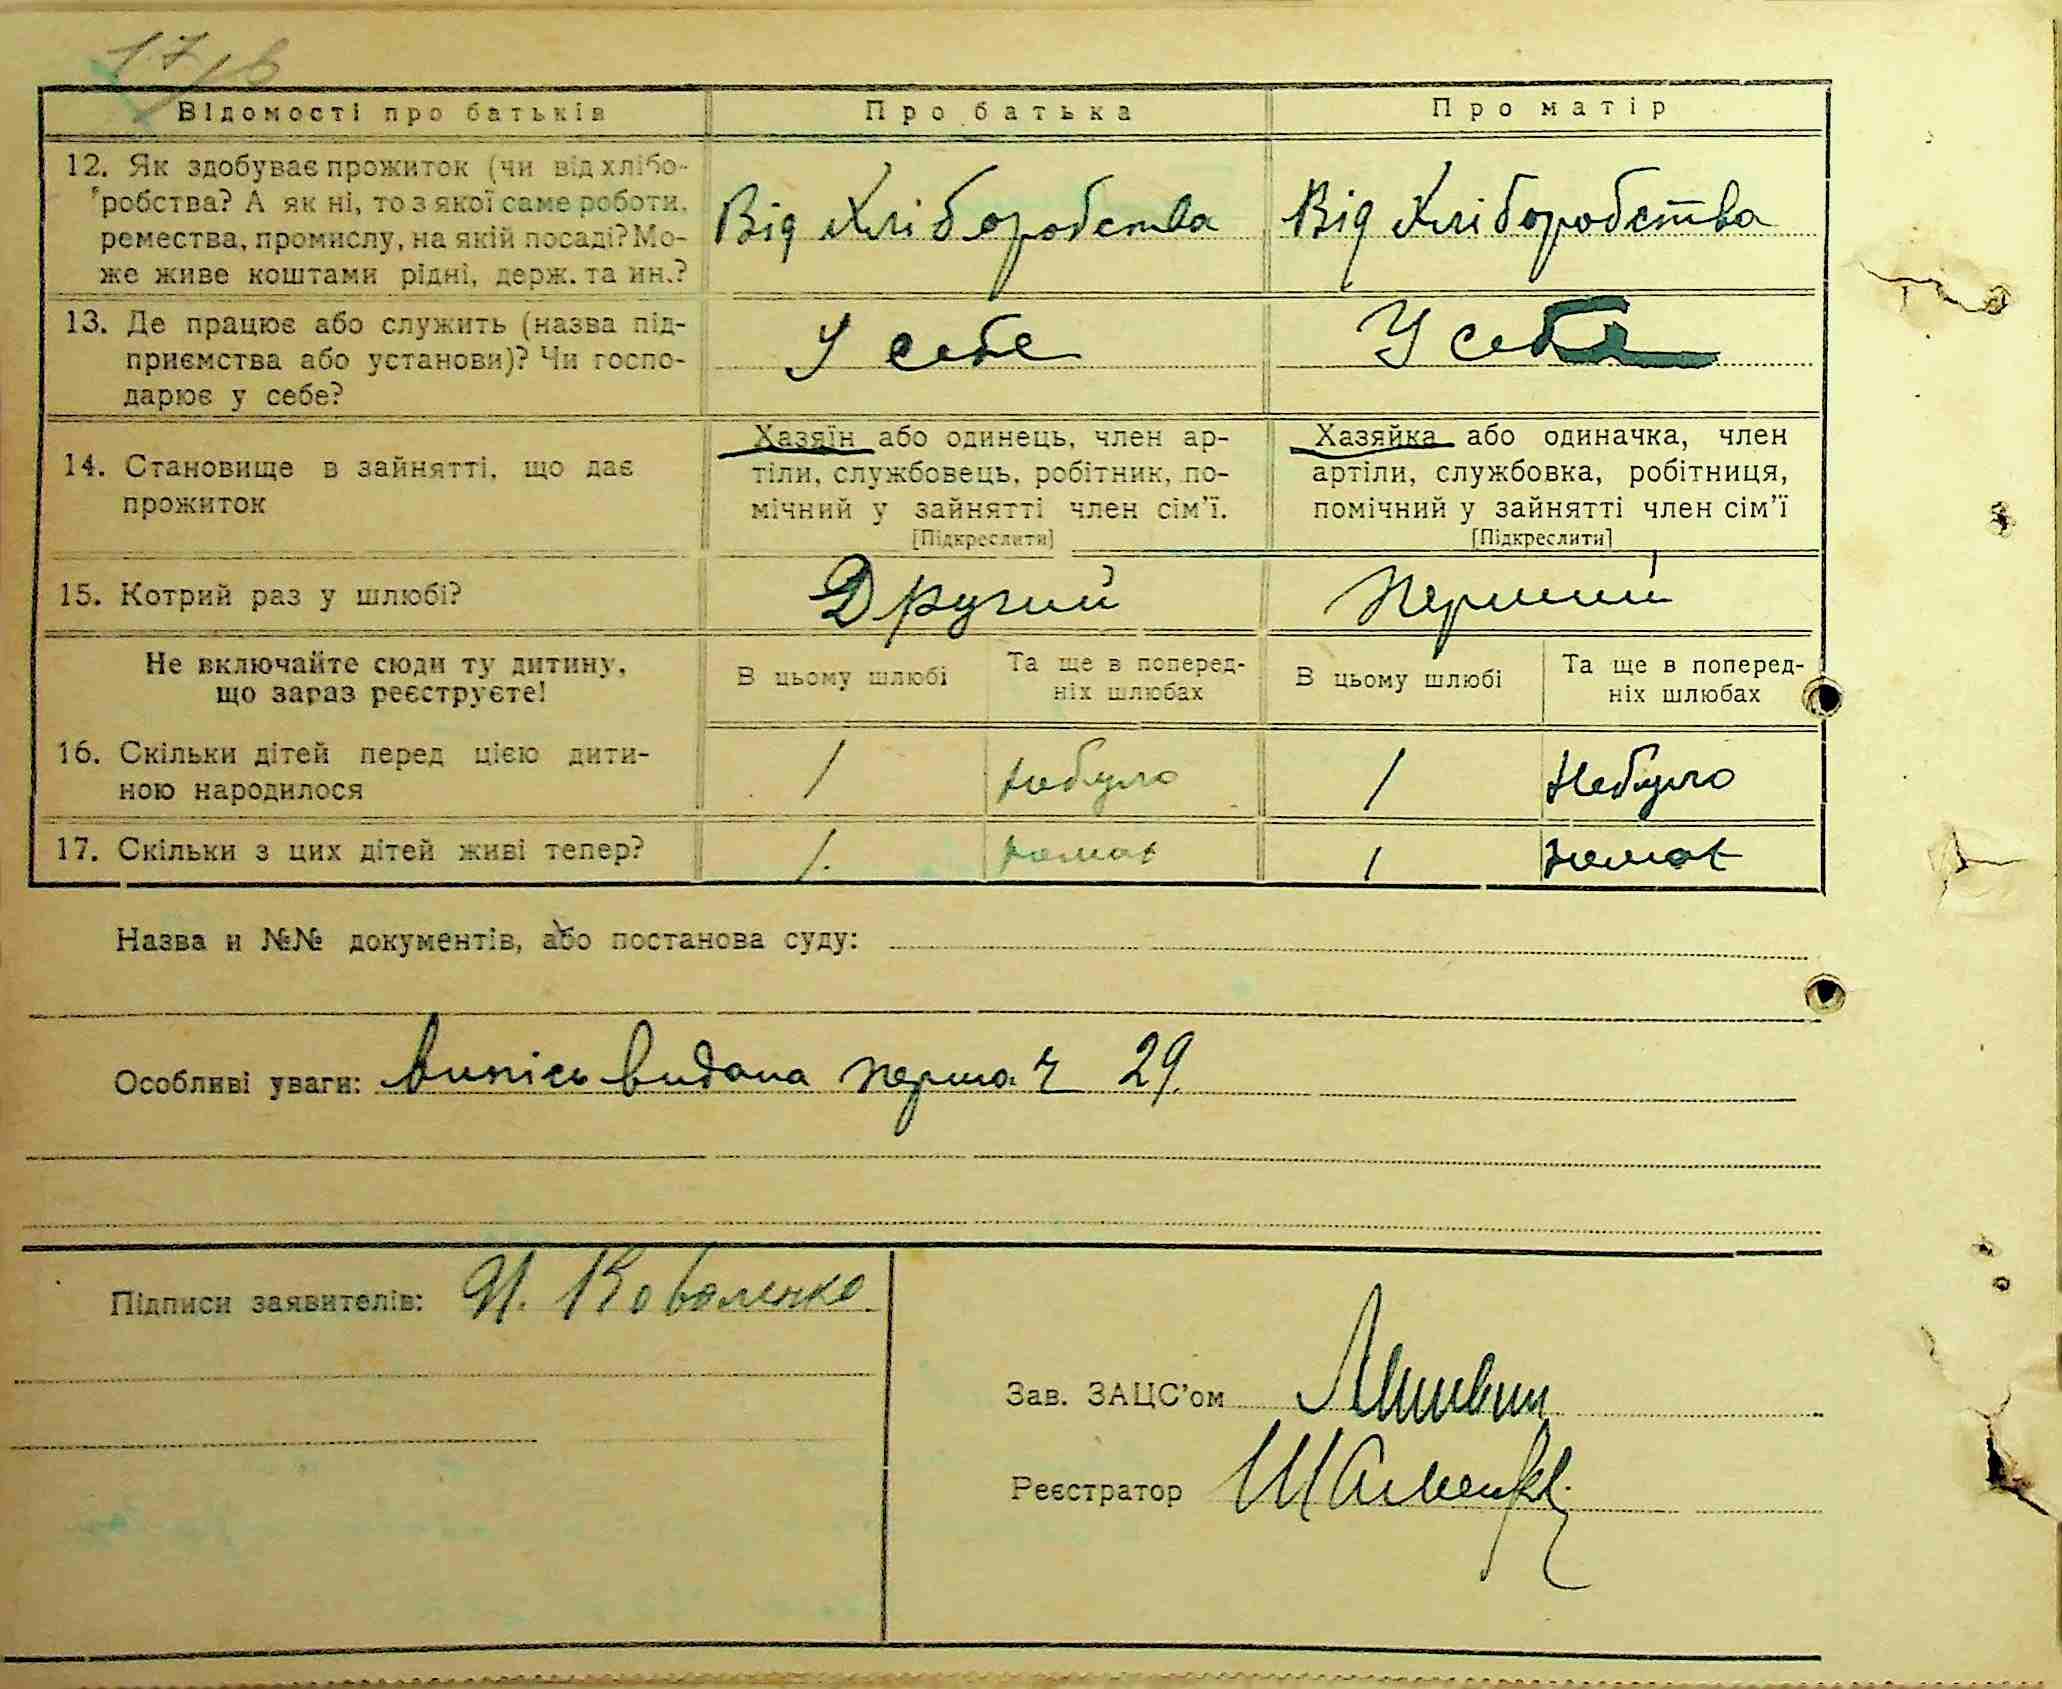 17/в
Відомості про батьків
Про батька
Про матір
12. Як здобуває прожиток (чи від хлібо-
робства? А як ні, то з якої саме роботи,
ремества, промислу, на якій посаді? Мо-
же живе коштами рідні, держ. та ин.?
Від Хліборобства
Від Хліборобства
13. Де працює або служить (назва під-
приємства або установи)? Чи госпо-
дарює у себе?
У себе
У себе
14. Становище в зайнятті, що дає
прожиток
Хазяїн або одинець, член ар-
тіли, службовець, робітник, по-
мічний у зайнятті член сім’ї.
[Підкреслити]
Хазяйка або одиначка, член
артіли, службовка, робітниця,
помічний у зайнятті член сім’ї
[Підкреслити]
15. Котрий раз у шлюбі?
Другий
Перший
Не включайте сюди ту дитину,
що зараз реєструєте!
В цьому шлюбі
Та ще в поперед-
ніх шлюбах
В цьому шлюбі
Та ще в поперед-
ніх шлюбах
16. Скільки дітей перед цією дити-
ною народилося
1 небуло 1 Небуло
17. Скільки з цих дітей живі тепер?
1. немає 1 немає
Назва и №№ документів, або постанова суду:
Особливі уваги: випісь видана перша ч 29
Підписи заявителів: И. Коваленко
Зав. ЗАЦС’ом
Реєстратор